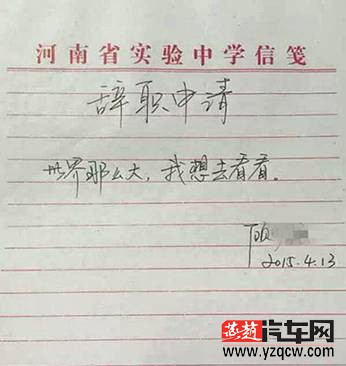 河南省实验中学信笺
辞职申请
世界那么大,我想去看看。
顾
2015.4.13
燕赵汽车网
www.yzqcw.com